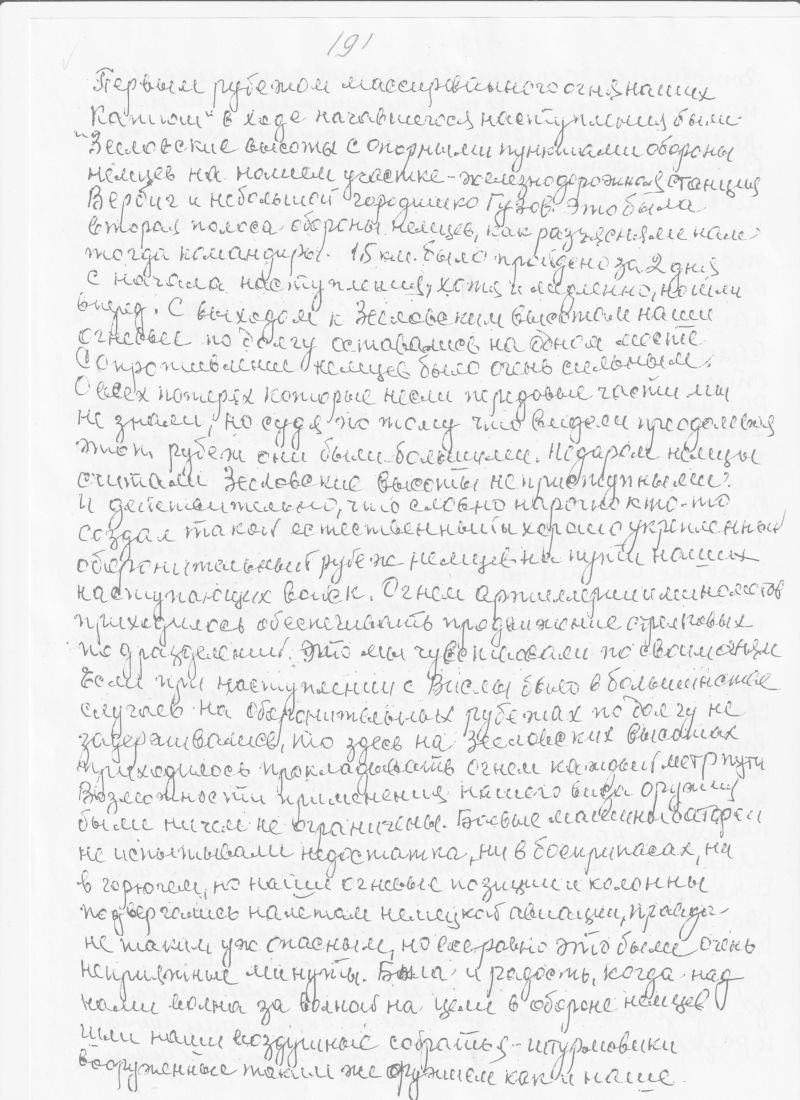 191
Первым рубежом массированного огня наших
„Катюш" в ходе начавшегося наступления были
Зееловские высоты с опорными пунктами обороны
немцев на нашем участке - железнодорожная станция
Вербиг и небольшой городишко Гузов. Это была
вторая полоса обороны немцев, как разъясняли нам
тогда командиры. 15 км. было пройдено за 2 дня
с начала наступления, хотя и медленно, но шли
вперед. С выходом к Зееловским высотам наши
огневые подолгу оставались на одном месте
Сопротивление немцев было очень сильным.
О всех потерях которые несли передовые части мы
не знали, но судя по тому что видели преодолевая
этот рубеж они были большими. Недаром немцы
считали Зееловские высоты неприступными.
И действительно, что словно нарочно кто-то
создал такой естественный и хорошо укрепленный
оборонительный рубеж немцев на пути наших
наступающих войск. Огнем артиллерии и минометов
приходилось обеспечивать продвижение стрелковых
подразделений. Это мы чувствовали по своим огням
Если при наступлении с Вислы было в большинстве
случаев на оборонительных рубежах подолгу не
задерживались, то здесь на Зееловских высотах
приходилось прокладывать огнем каждый метр пути
Возможности применения нашего вида оружия
были ничем не ограничены. Боевые машины батареи
не испытывали недостатка, ни в боеприпасах, ни
в горючем, но наши огневые позиции и колонны
подвергались налетам немецкой авиации, правда
не таким уж опасным, но все равно это были очень
неприятные минуты. Была и радость, когда над
нами волна за волной на цели в обороне немцев
шли наши воздушные собратья - штурмовики
вооруженные таким же оружием как и наше.